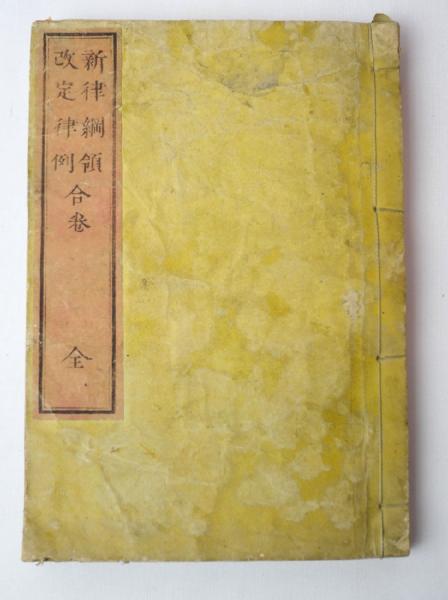 新律綱領
改定律例
合巻
全